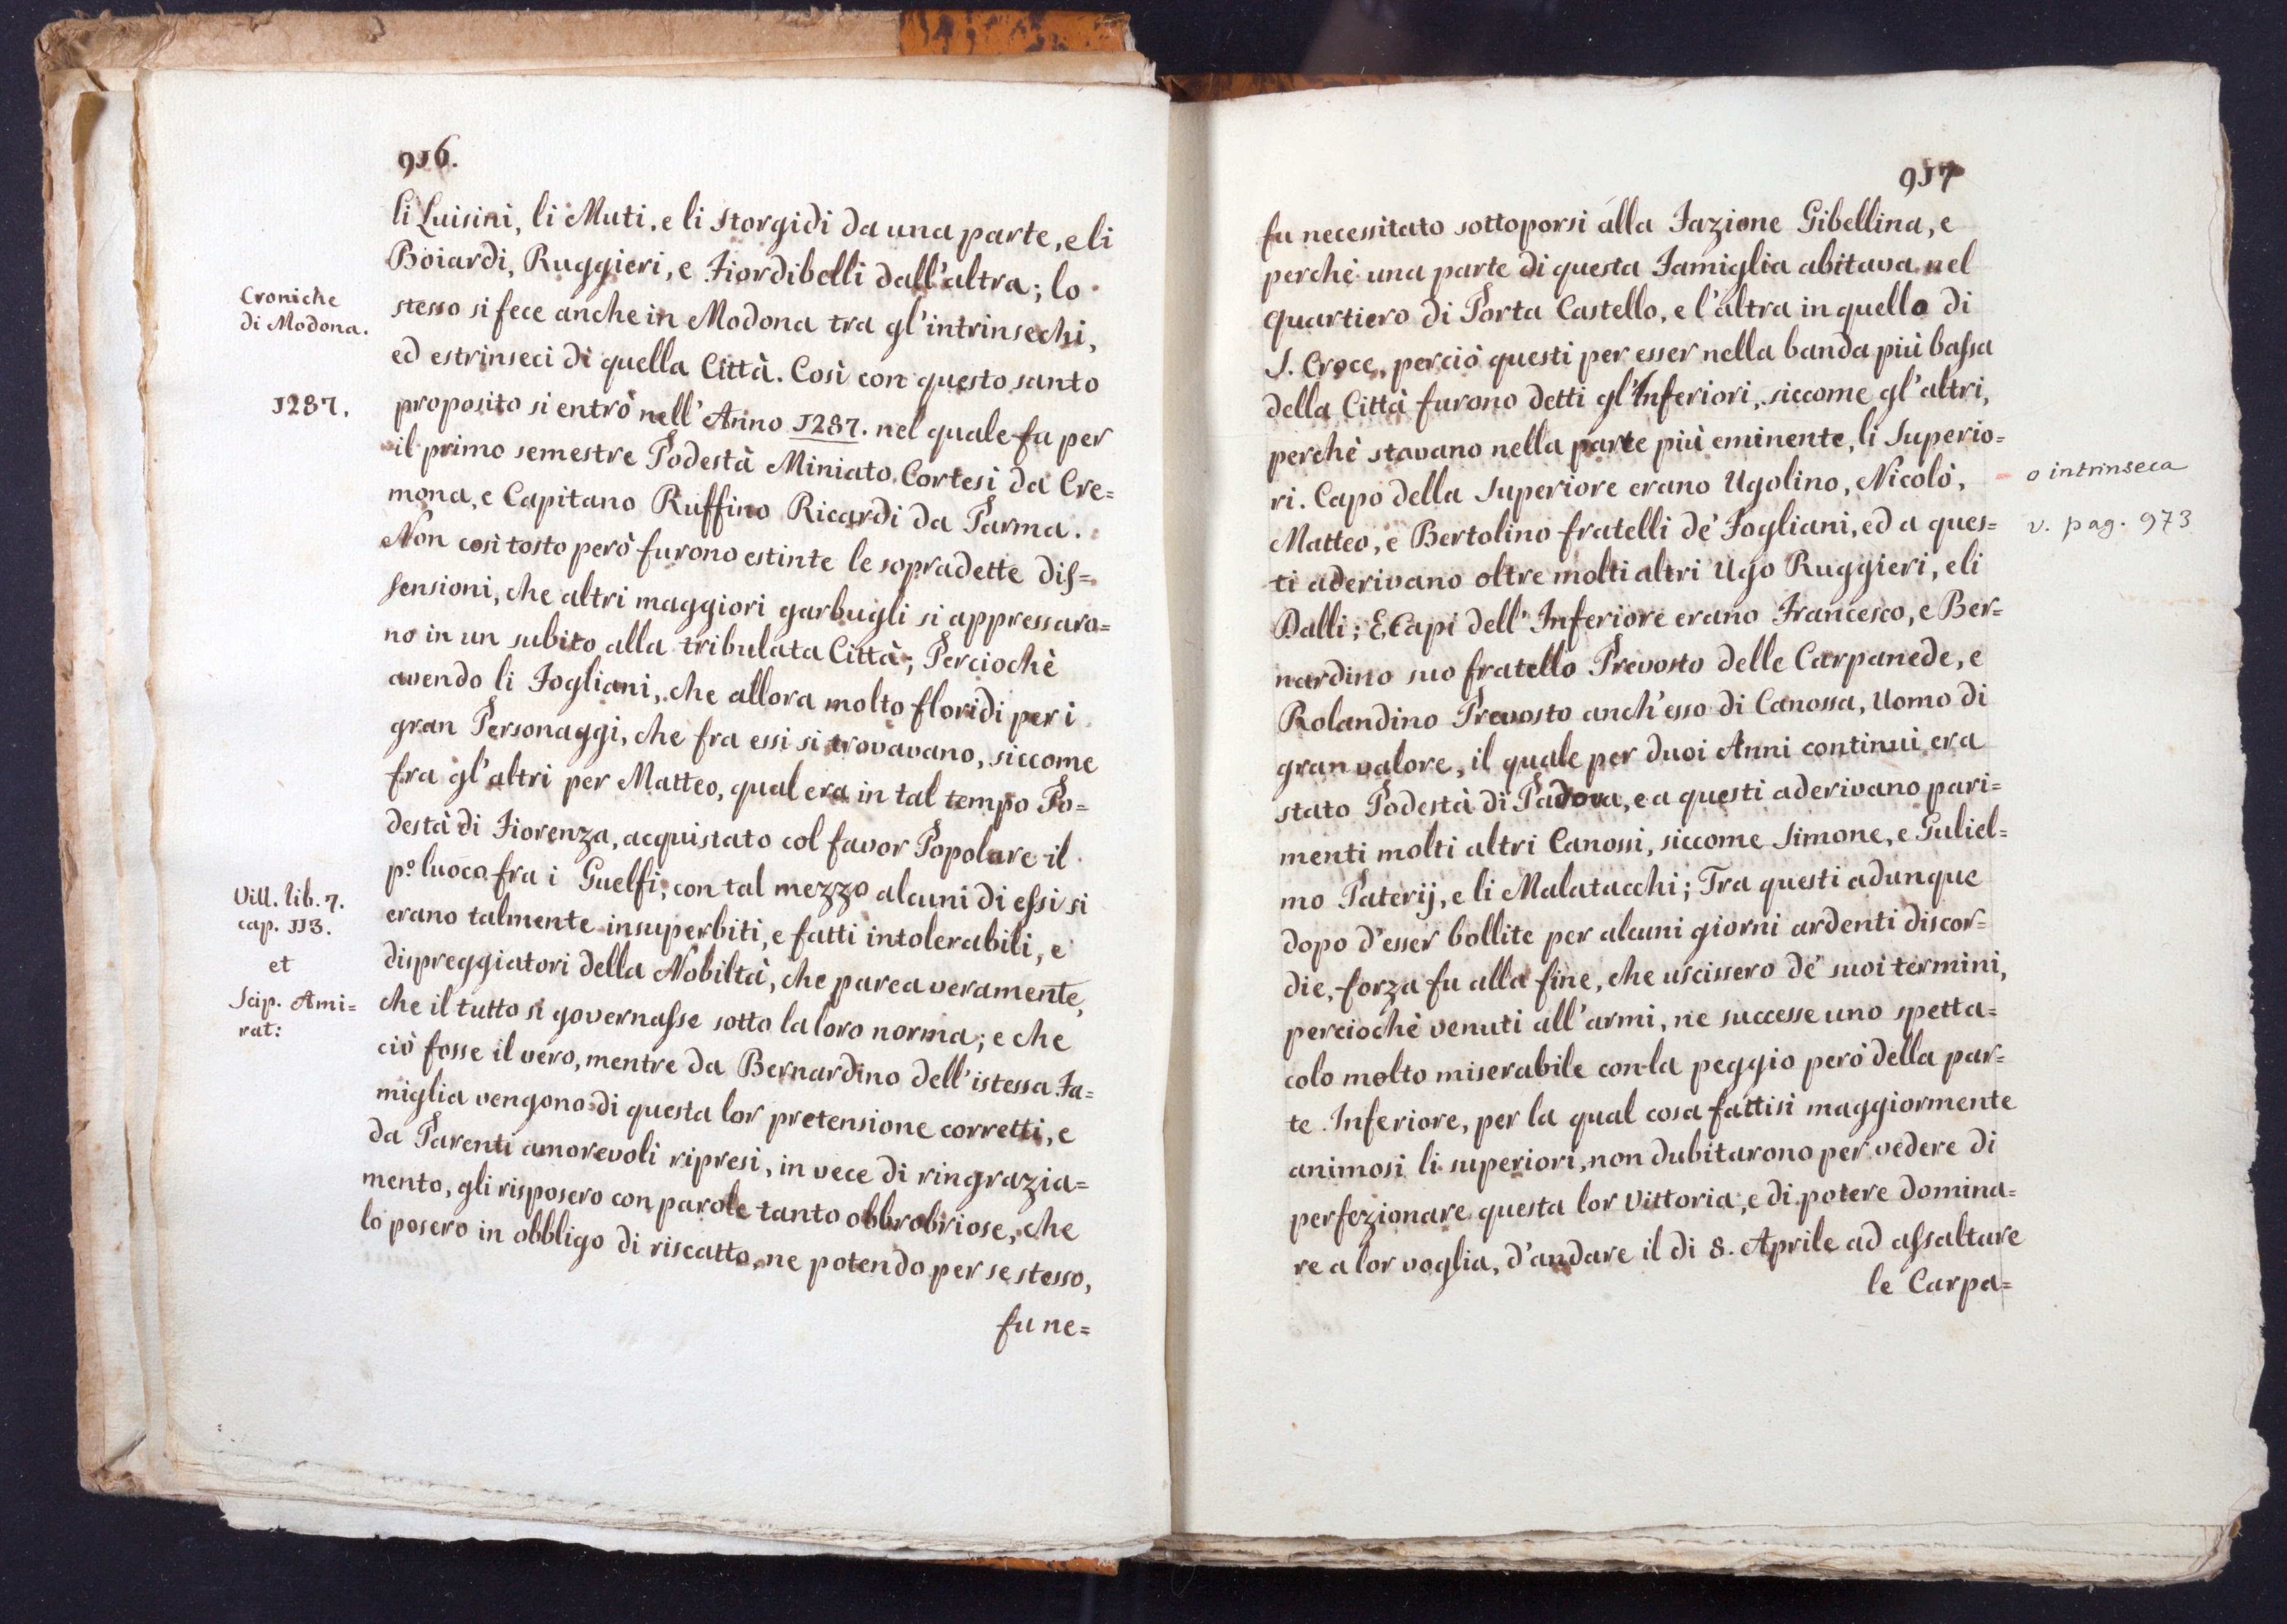 916.
li Luisini, li Muti, e li Storgidi da una parte, e li
Boiardi, Ruggieri, e Fiordibelli dall'altra; lo
Croniche
di Modona.
stesso si fece anche in Modona tra gl'intrinsechi,
ed estrinseci di quella Città. Così con questo santo
1287.
proposito si entrò nell'Anno 1287. nel quale fu per
il primo semestre Podestà Miniato Cortesi da Cre=
mona, e Capitano Ruffino Ricardi da Parma.
Non così tosto però furono estinte le sopradette dis=
sensioni, che altri maggiori garbugli si appressaro=
no in un subito alla tribulata Città; Perciochè
avendo li Fogliani, che allora molto floridi per i
gran Personaggi, che fra essi si trovavano, siccome
fra gl'altri per Matteo, qual era in tal tempo Po=
destà di Fiorenza, acquistato col favor Popolare il
pº luoco fra i Guelfi, con tal mezzo alcuni di essi si
Vill. lib. 7.
cap. 113.
et
Scip. Ami=
rat:
erano talmente insuperbiti, e fatti intolerabili, e
dispreggiatori della Nobiltà, che parea veramente,
che il tutto si governasse sotto la loro norma; e che
ciò fosse il vero, mentre da Bernardino dell'istessa Fa=
miglia vengono di questa lor pretensione corretti, e
da Parenti amorevoli ripresi, in vece di ringrazia=
mento, gli risposero con parole tanto obbrobriose, che
lo posero in obbligo di riscatto, ne potendo per se stesso,
fu ne=
917
fu necessitato sottoporsi alla Fazione Gibellina, e
perchè una parte di questa Famiglia abitava nel
quartiero di Porta Castello, e l'altra in quello di
S. Croce, perciò questi per esser nella banda più bassa
della Città furono detti gl'Inferiori, siccome gl'altri,
perchè stavano nella parte più eminente, li Superio=
ri. Capo della Superiore erano Ugolino, Nicolò,
o intrinseca
Matteo, e Bertolino fratelli de' Fogliani, ed a ques=
v. pag. 973
ti aderivano oltre molti altri Ugo Ruggieri, e li
Dalli; E Capi dell'Inferiore erano Francesco, e Ber=
nardino suo fratello Prevosto delle Carpanede, e
Rolandino Prevosto anch'esso di Canossa, Uomo di
gran valore, il quale per duoi Anni continui era
stato Podestà di Padova, e a questi aderivano pari=
menti molti altri Canossi, siccome Simone, e Guliel=
mo Paterij, e li Malatacchi; Tra questi adunque
dopo d'esser bollite per alcuni giorni ardenti discor=
die, forza fu alla fine, che uscissero de' suoi termini,
perciochè venuti all'armi, ne successe uno spetta=
colo molto miserabile con la peggio però della par=
te Inferiore, per la qual cosa fattisi maggiormente
animosi li superiori, non dubitarono per vedere di
perfezionare questa lor Vittoria, e di potere domina=
re a lor voglia, d'andare il di 8. Aprile ad assaltare
le Carpa=